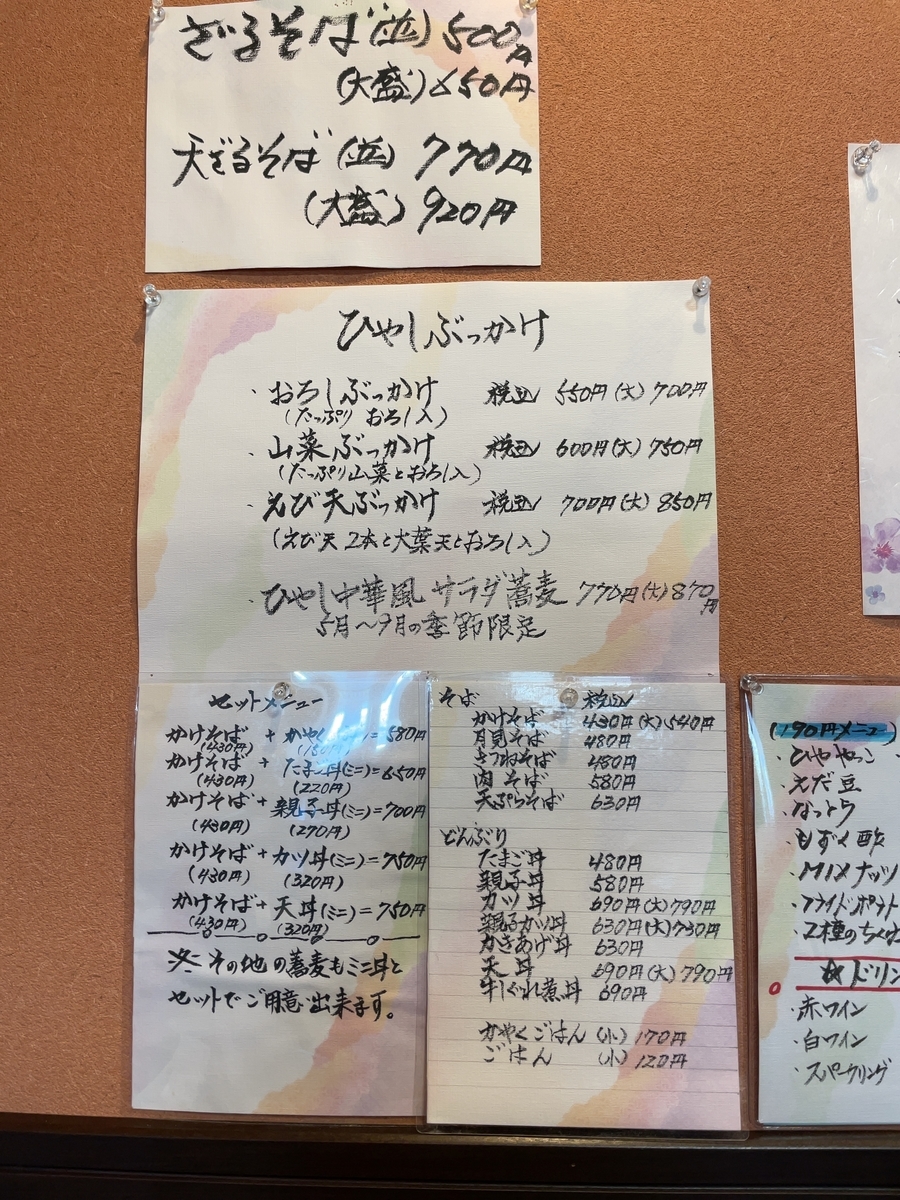 ざるそば(並)500円
(大盛)650円
天ざるそば(並)770円
(大盛)920円
ひやしぶっかけ
・おろしぶっかけ 税込 550円(大)700円
(たっぷりおろし入)
・山菜ぶっかけ 税込 600円(大)750円
(たっぷり山菜とおろし入)
・えび天ぶっかけ 税込 700円(大)850円
(えび天2本と大葉天とおろし入)
・ひやし中華風サラダ蕎麦 770円(大)870円
5月〜9月の季節限定
セットメニュー
かけそば + かやく =580円
(430円) (150円)
かけそば + たま 丼(ミニ)=650円
(430円) (220円)
かけそば + 親子丼(ミニ)=700円
(430円) (270円)
かけそば + カツ丼(ミニ)=750円
(430円) (320円)
かけそば + 天丼(ミニ)=750円
(430円) (320円)
その他の蕎麦もミニ丼と
セットでご用意出来ます。
そば 税込
かけそば 430円(大)540円
月見そば 480円
きつねそば 480円
肉そば 580円
天ぷらそば 630円
どんぶり
たまご丼 480円
親子丼 580円
カツ丼 690円(大)790円
親子カツ丼 630円(大)730円
かきあげ丼 630円
天丼 690円(大)790円
牛しぐれ煮丼 690円
かやくごはん (小)170円
ごはん (小)120円
(190円メニュー)
・ひややっこ
・えだ豆
・なっとう
・もずく酢
・MIXナッツ
・フライドポテト
・2種のちくわ
☆ドリン
・赤ワイン
・白ワイン
・スパークリング